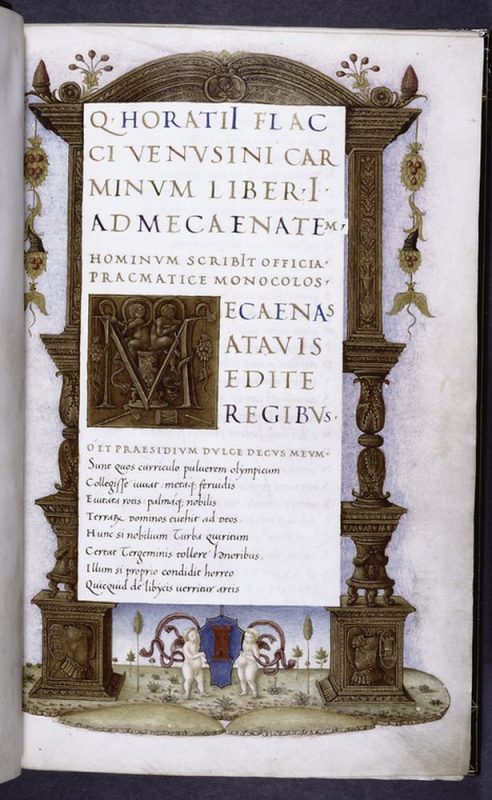 Q·HORATII FLAC
CI VENVSINI CAR
MINVM LIBER·I·
AD MECAENATEM·
HOMINVM SCRIBIT OFFICIA·
PRACMATICE MONOCOLOS·
MECAENAS
ATAVIS
EDITE
REGIBVS·
O ET PRAESIDIVM DVLCE DECVS MEVM·
Sunt quos curriculo puluerem olympicum
Collegisse iuuat: metaq; feruidis
Euitata rotis: palmaq; nobilis
Terraꝝ dominos euehit ad deos.
Hunc si nobilium Turba quiritum
Certat Tergeminis tollere honoribus.
Illum si proprio condidit horreo
Quicquid de libycis uerritur areis